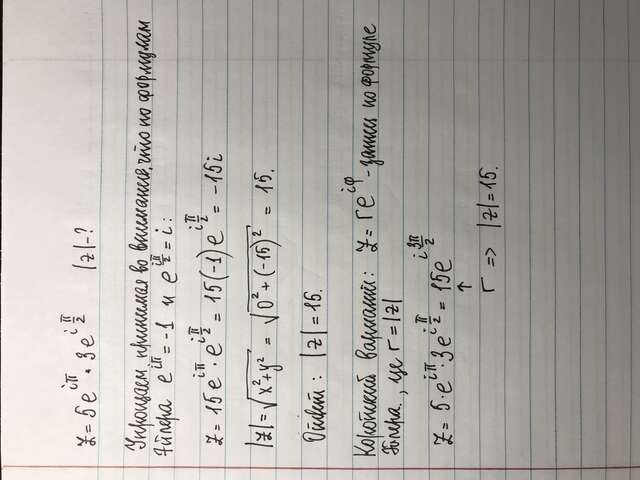 z = 5e^{iπ} · 3e^{iπ/2} |z| - ?
Упрощаем, принимая во внимание, что по формулам
Эйлера e^{iπ} = -1 и e^{iπ/2} = i :
z = 15e^{iπ} · e^{iπ/2} = 15(-1)e^{iπ/2} = -15i
|z| = √(x² + y²) = √(0² + (-15)²) = 15.
Ответ : |z| = 15.
Короткий вариант: z = re^{iφ} - запись по формуле
Эйлера., где r = |z|
z = 5 · e^{iπ} · 3e^{iπ/2} = 15e^{i3π/2}
↑
r => |z| = 15.